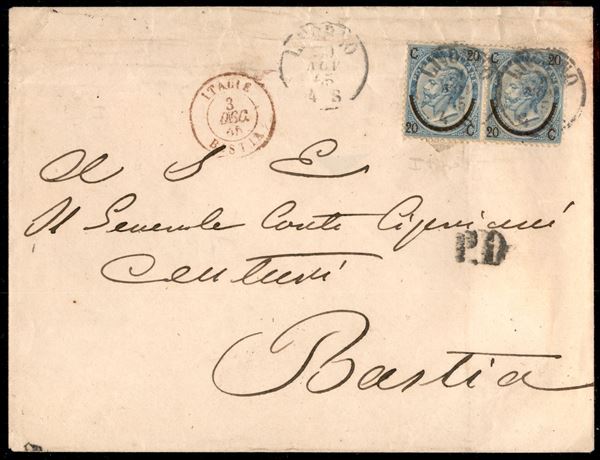 LIVORNO
30
NOV
65
4 S
C 20
20 C
C 20
20 C
ITALIE
3
DEC.
65
BASTIA
A S E
Il Generale Conte Cipriani
P.D
Centuri
Bastia